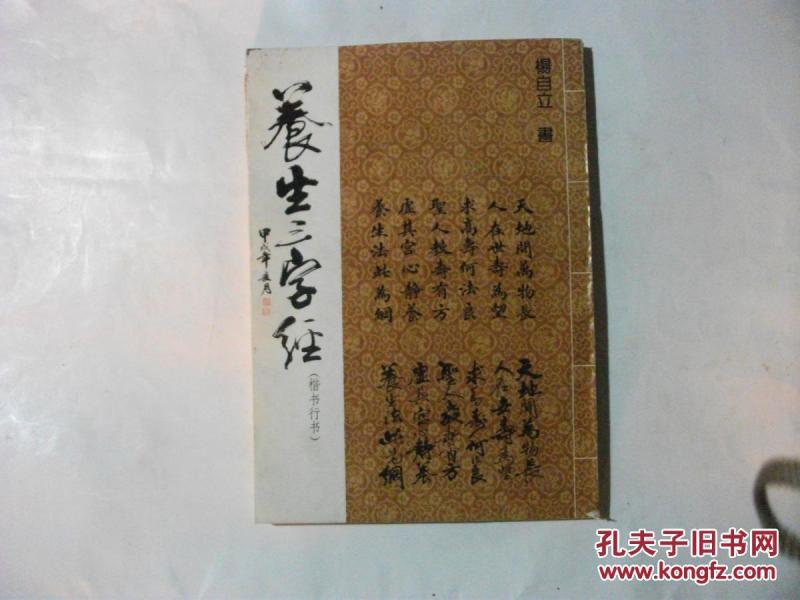 養生三字经
(楷书行书)
甲戌年
楊自立 書
天地間萬物長
人在世壽為望
求高壽何法良
聖人教壽有方
虛其宮心靜養
養生法此為綱
天地間萬物長
人在世壽為望
求高壽何法良
聖人教壽有方
虛其宮心靜養
養生法此為綱
孔夫子旧书网
www.kongfz.com